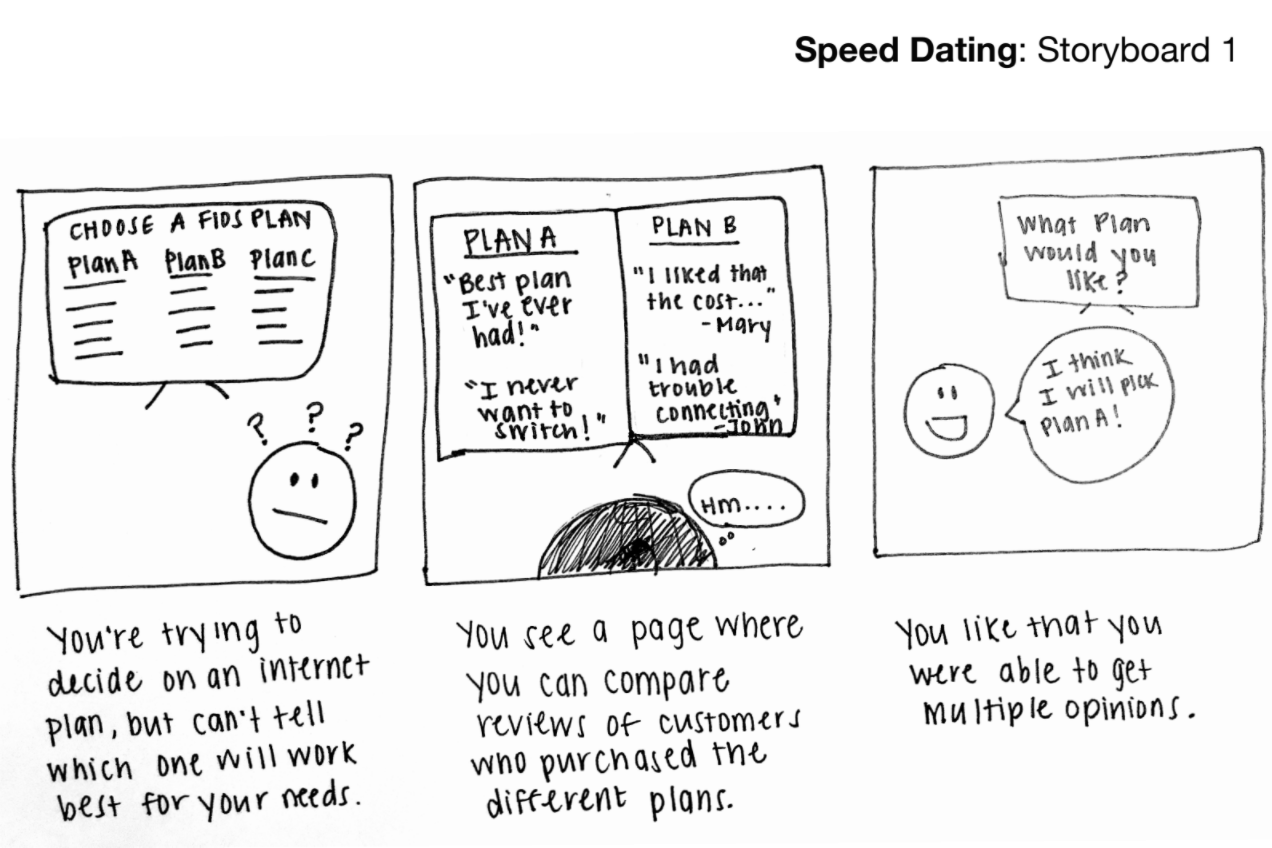 Speed Dating: Storyboard 1
CHOOSE A FIOS PLAN
Plan A Plan B Plan C
? ? ?
You're trying to
decide on an internet
plan, but can't tell
which one will work
best for your needs.
PLAN A
"Best plan
I've ever
had!"
"I never
want to
switch!"
PLAN B
"I liked that
the cost..."
-Mary
"I had
trouble
connecting"
-John
Hm....
You see a page where
you can compare
reviews of customers
who purchased the
different plans.
What Plan
would you
like?
I think
I will pick
Plan A!
You like that you
were able to get
multiple opinions.